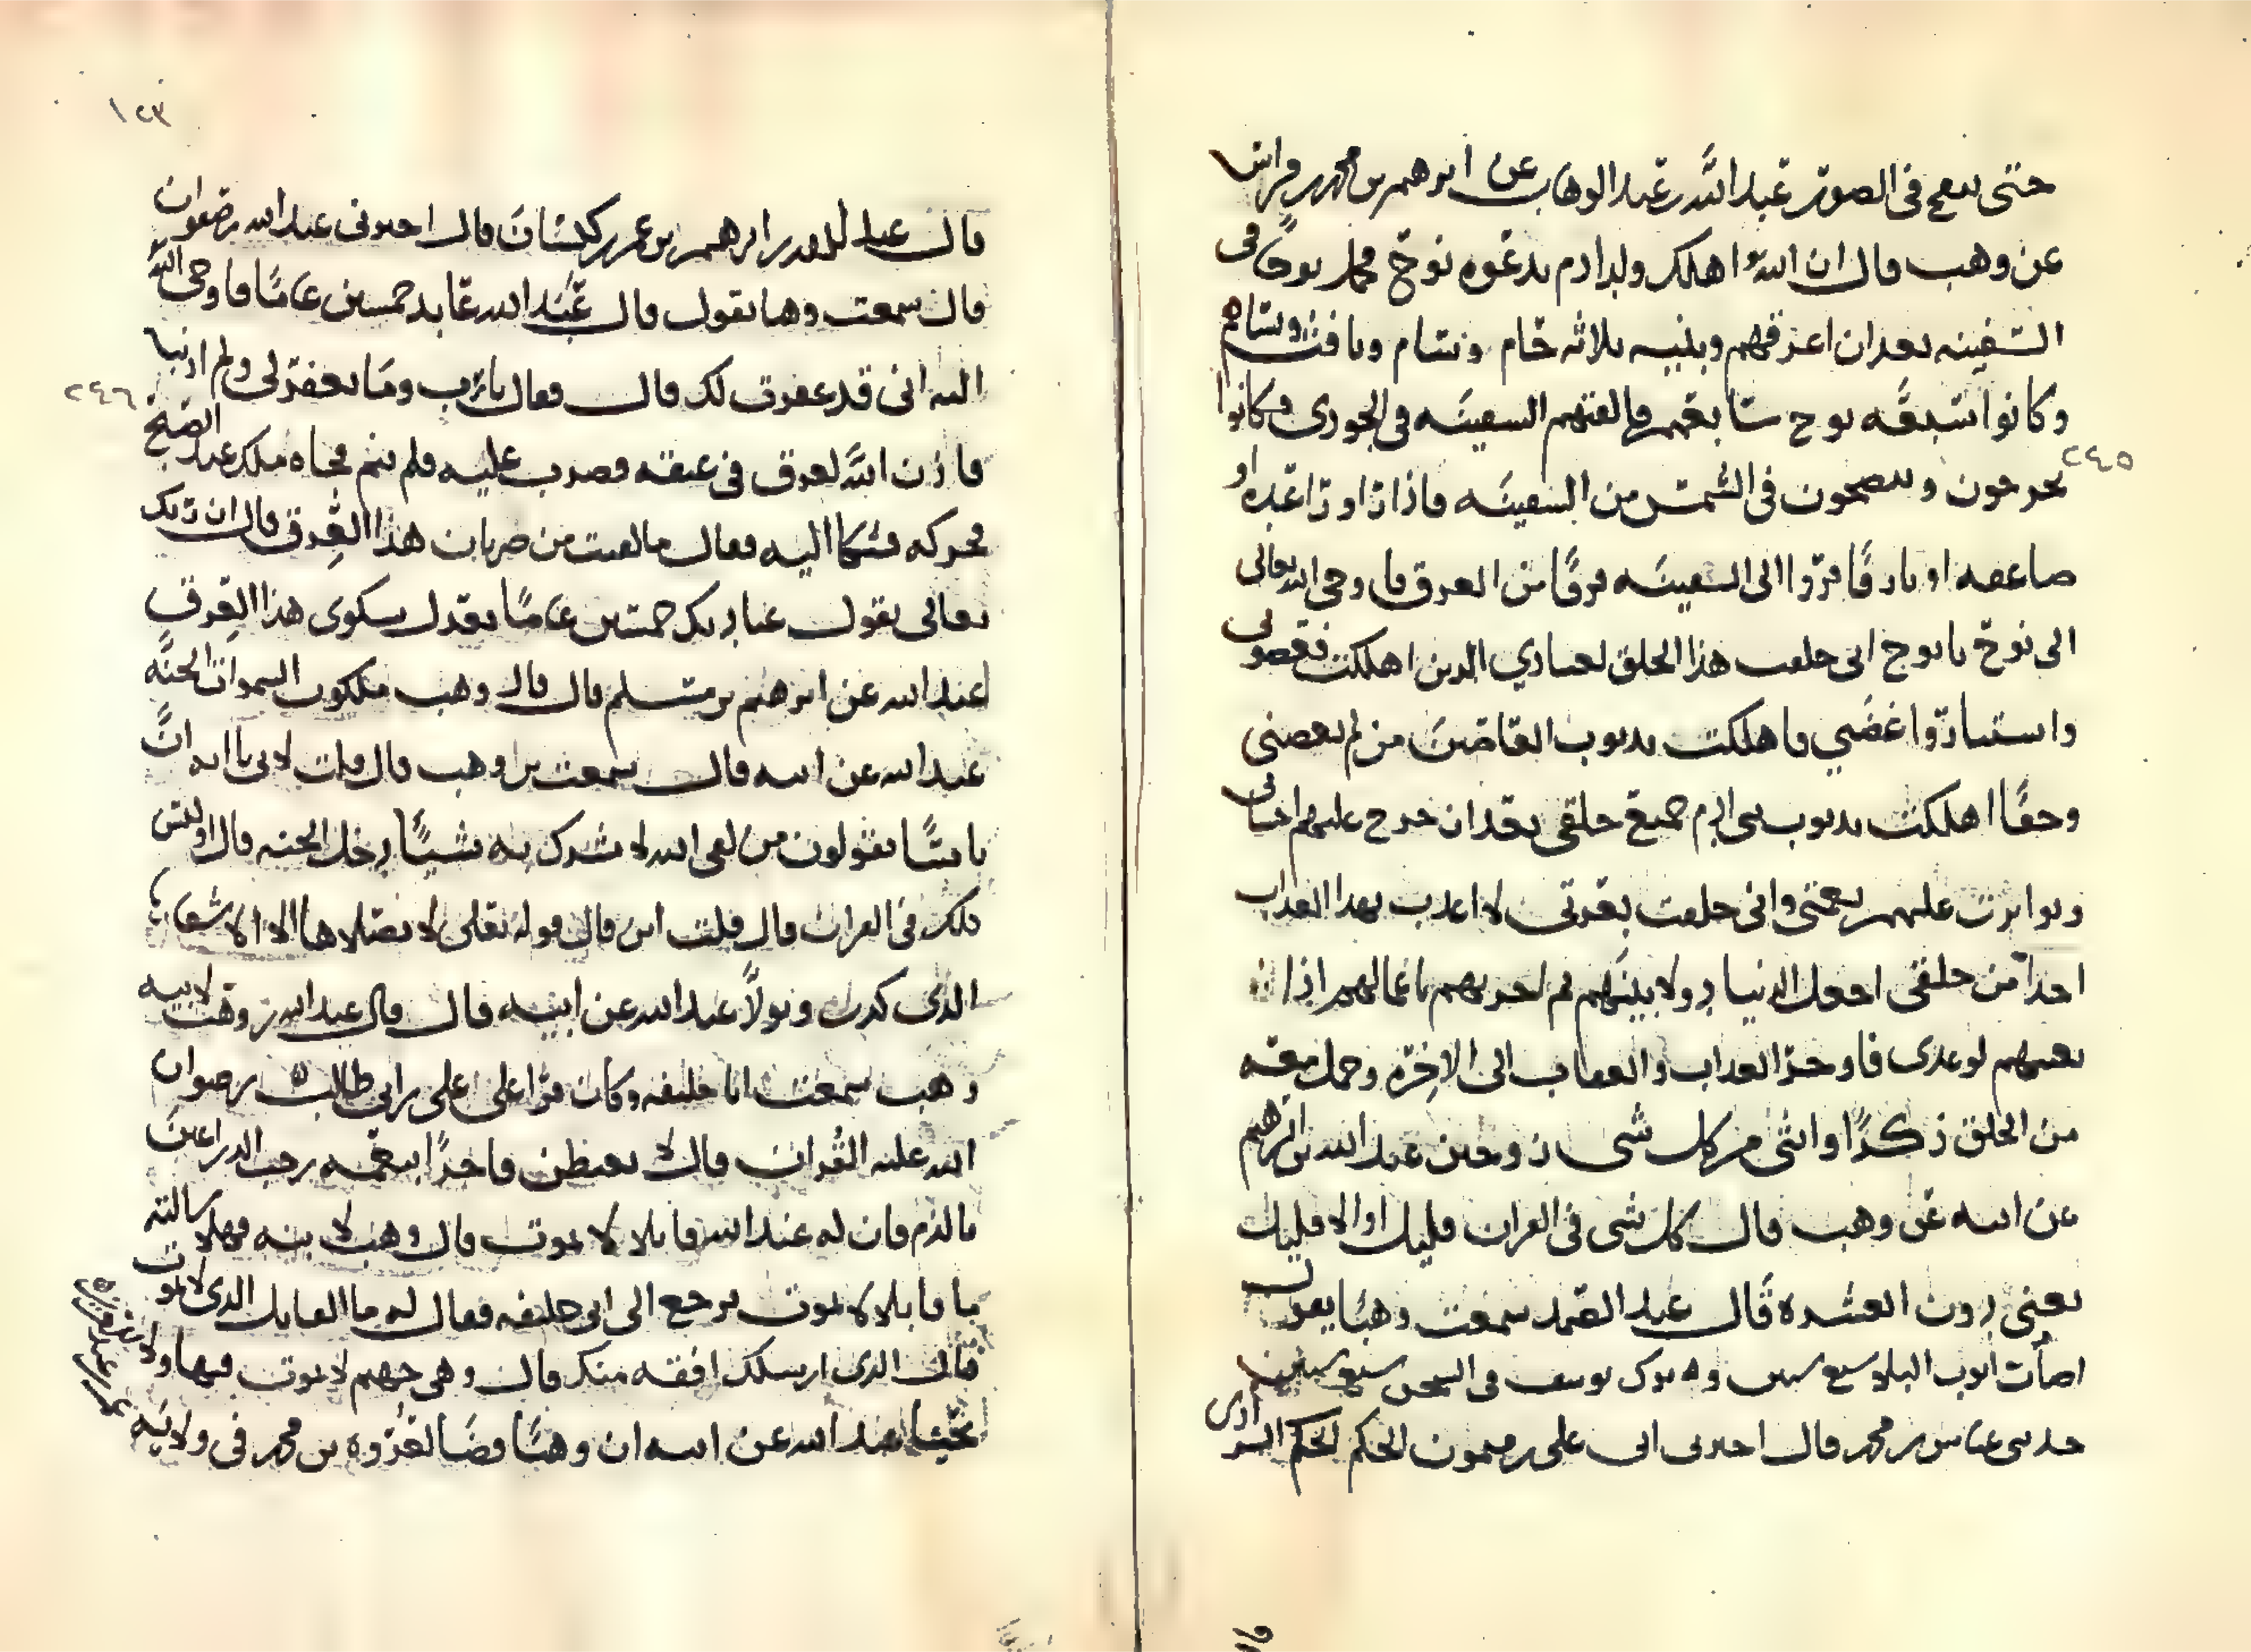 حتى ينفخ في الصور عبد الله بن عبد الوهاب عن ابرهيم بن محمد
عن وهب قال ان الله اهلك ولد ادم بدعوه نوح فحمل نوحًا في
السفينه بعد ان اغرقهم وبنيه ثلاثه حام وسام ويافث
وكانوا سبعه نوح سابعهم فالقتهم السفينه في الجودي وكانوا
٢٤٥
يخرجون و في الشمس من السفينه فاذا راو رعده او
صاعقه او بارقًا فروا الى السفينه فرقًا من الغرق فاوحى الله تعالى
الى نوح يا نوح اني خلقت هذا الخلق لعبادي الذين اهلكت فعصوني
واستثاروا غضبي فاهلكت بذنوب العاصين من لم يعصني
وحقًا اهلكت بذنوب بني ادم جميع خلقي بعد ان خرج عليهم
وتواترت عليهم نعمتي واني حلفت بعزتي لا اعذب بهذا العذاب
احدًا من خلقي اجعل الدنيا دولا بينهم ثم اجزيهم باعمالهم اذا
لوعدي فاوخر العذاب والعقاب الى الاخرة وحمل معه
من الخلق ذكرًا وانثى من كل شي زوجين عبد الله بن ابرهيم
عن ابيه عن وهب قال كل شي في القران قليل او الا قليل
يعني دون العشره قال عبد الصمد سمعت وهبًا يقول
اصاب ايوب البلاء سبع سنين وترك يوسف في السجن سبع سنين
حدثني عباس بن محمد قال اخبرني ابي علي بن ميمون الحكم
١٢٣
قال عبد الله بن ابرهيم بن عمر بن كيسان قال اخبرني عبد الله بن صفوان
قال سمعت وهبا يقول قال عبد الله عابد خمسين عامًا فاوحى الله
اليه اني قد غفرت لك قال فقال يا رب وما تغفر لي ولم اذنب
٢٤٦
فاذن الله لعرق في عنقه فضرب عليه فلم ينم فجاه ملك عند الصبح
فحركه فشكا اليه فقال ما لقيت من ضربان هذا العرق قال ان ربك
تعالى يقول عبادتك خمسين عامًا تعدل شكوى هذا العرق
عبد الله عن ابرهيم بن مسلم قال قال وهب ملكوت السموات الجنه
عبد الله عن ابيه قال سمعت بن وهب قال قلت لابي يا ابه ان
ناسًا يقولون من لقي الله لا يشرك به شيًا دخل الجنه قال او ليس
ذلك في القران قال قلت اين قال قوله تعالى لا يصلاها الا الاشقى
الذي كذب وتولا عبد الله عن ابيه قال قال عبد الله بن وهب لابيه
وهب سمعت ابا خليفه وكان قرا على علي بن ابي طالب رضوان
الله عليه القران قال لا
ما لزم فان له عند الله قابلا لا يموت قال وهب لابنه فهلا سالته
ما قابلا لا يموت فرجع الى ابي خليفه فقال له ما القابل الذي لا يموت
قال الذي ارسلك افقه منك قال وهي جهنم لا يموت فيها ولا
يحيا عبد الله عن ابيه ان وهبًا قضا لعروه بن محمد في ولايه
عمر بن عبد العزيز